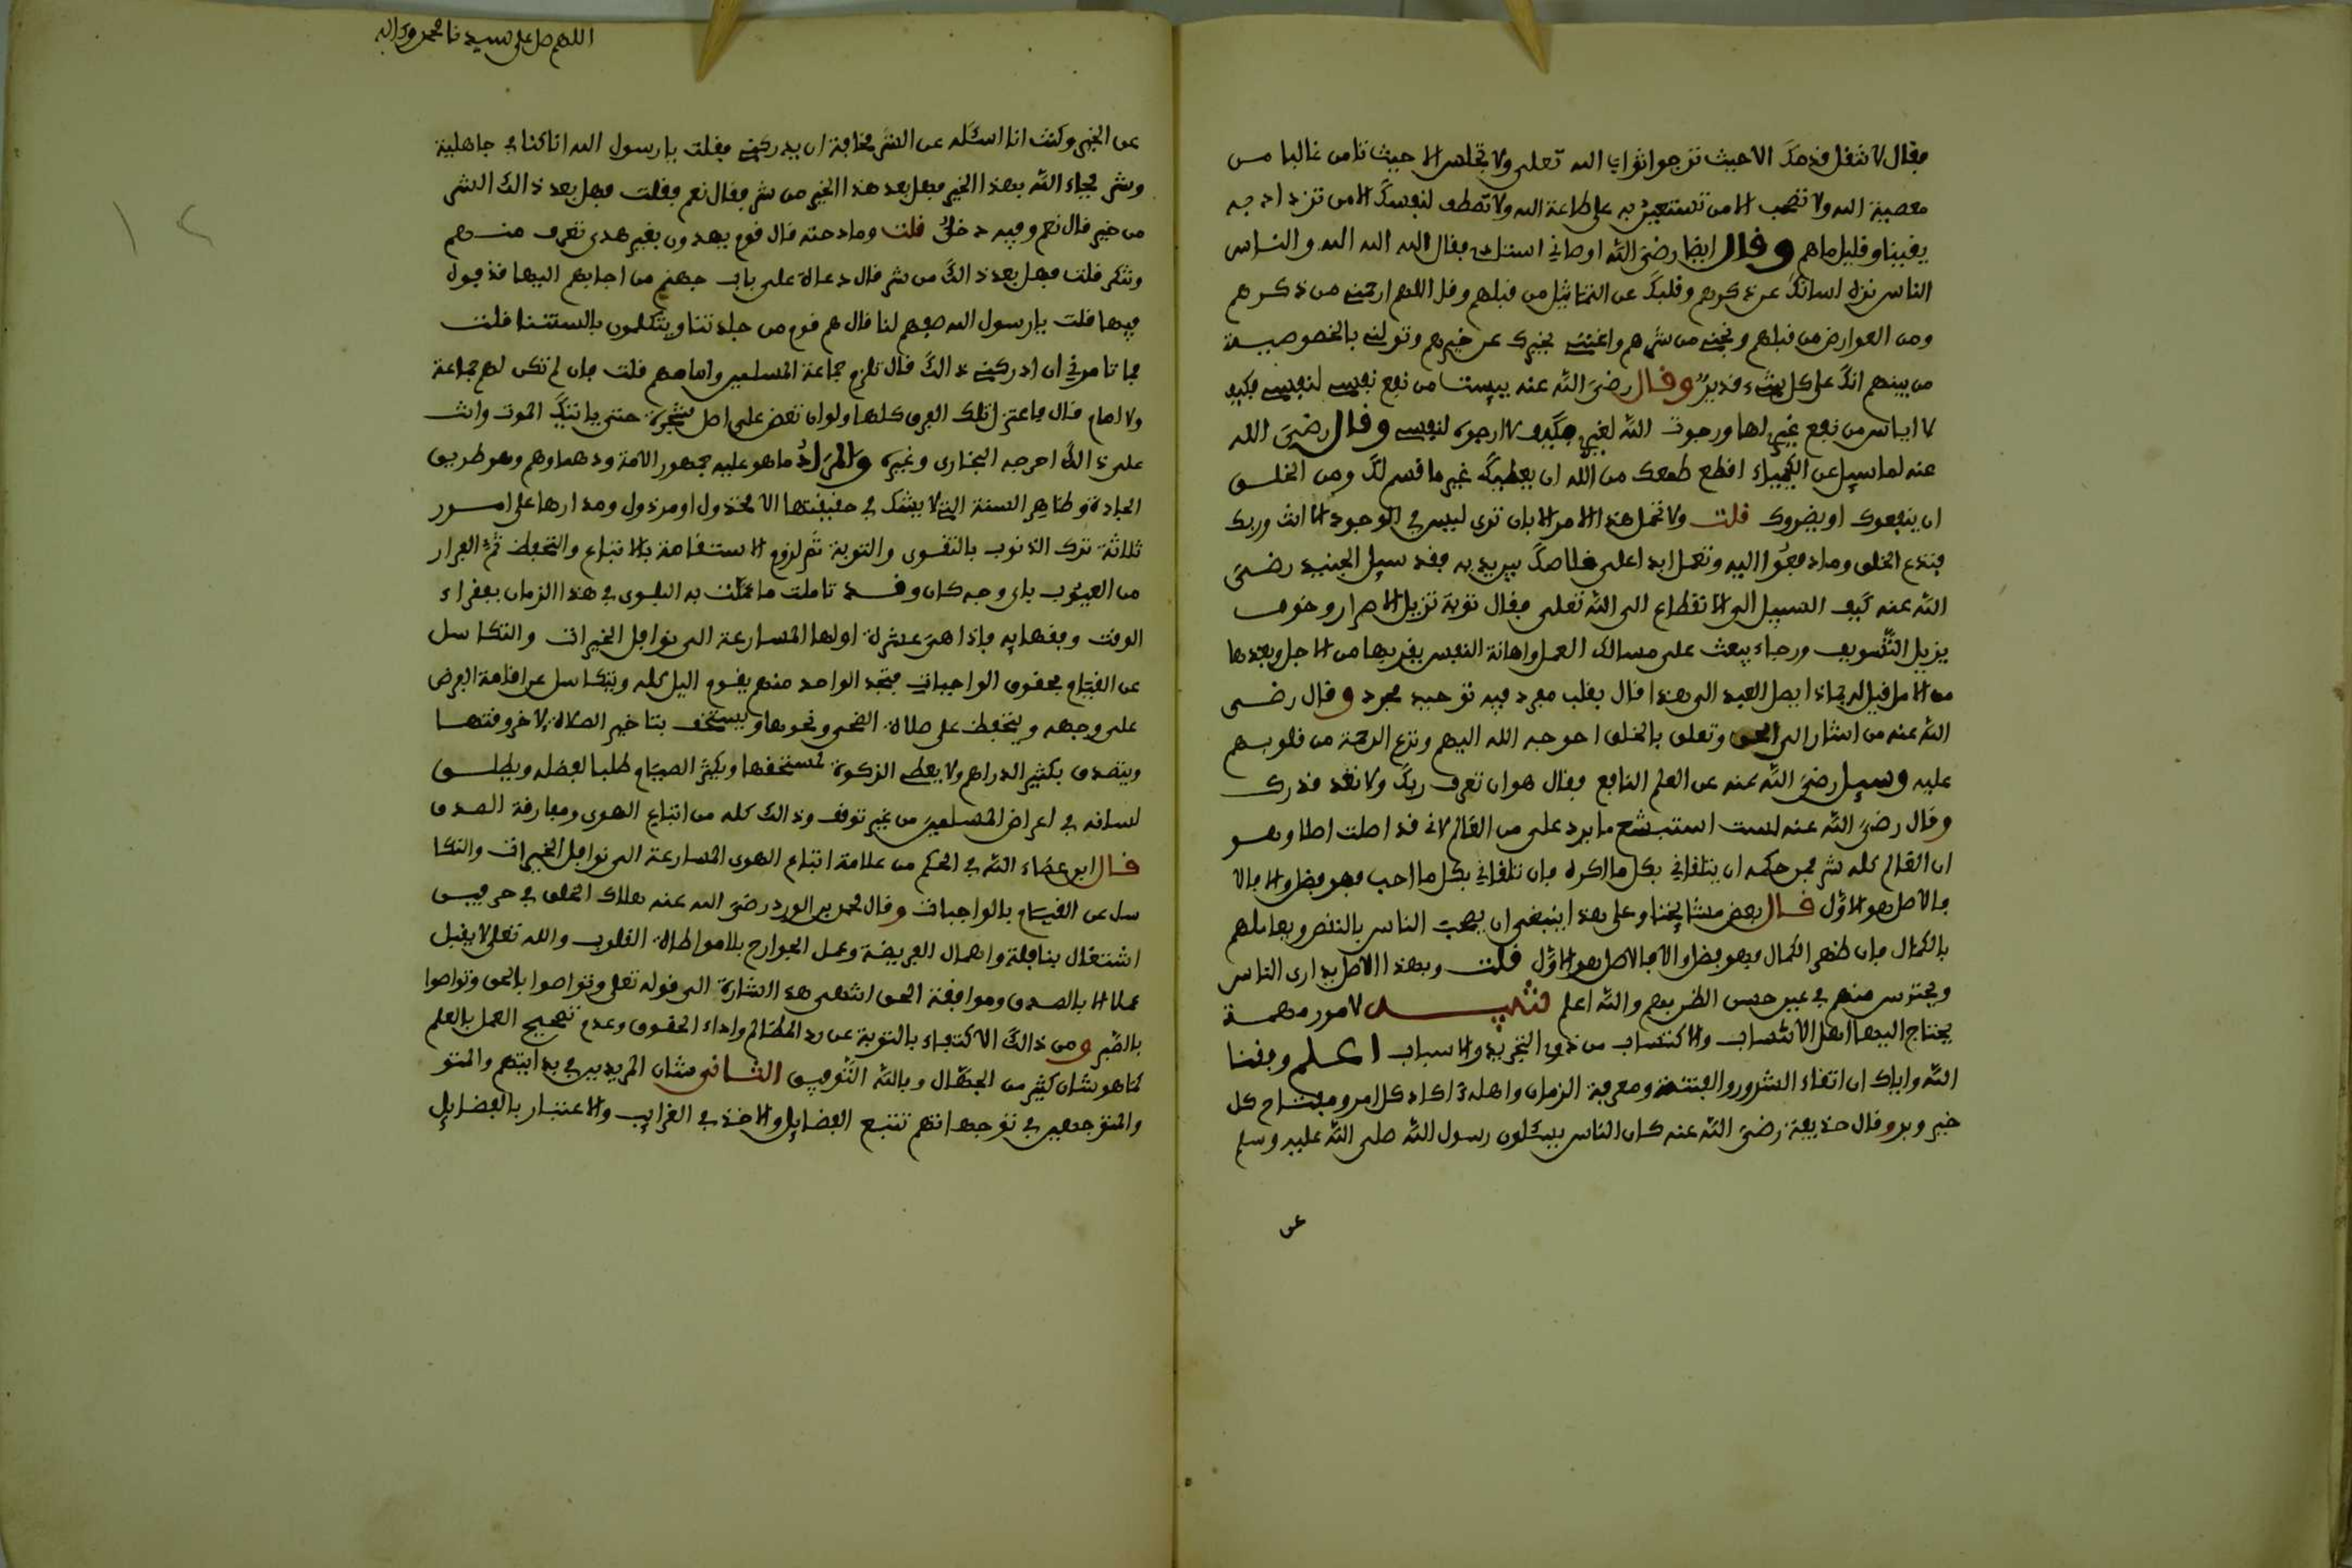 فقال لا تنقل قدمك الا حيث ترجوا ثواب الله تعلى ولا تجلس الا حيث تامن غالبا من
معصية الله ولا تصحب الا من تستعين به على طاعة الله ولا تصطف لنفسك الا من تزداد به
يقينا وقليل ما هم وقال ايضا رضي الله اوصاني استاذي فقال الله الله والناس
الناس نزه لسانك عن ذكرهم وقلبك عن التماثيل من قبلهم وقل اللهم ارحمني من ذكرهم
ومن العوارض من قبلهم ونجني من شرهم واغنني بخيرك عن خيرهم وتولني بالخصوصية
من بينهم انك على كل شيء قدير وقال رضي الله عنه ييست من نفع نفسي لنفسي فكيف
لا ايأس من نفع غيري لها ورجوت الله لغيري فكيف لا ارجوه لنفسي وقال رضي الله
عنه لما سيل عن الكيمياء اقطع طمعك من الله ان يعطيك غير ما قسم لك ومن الخلق
ان ينفعوك او يضروك قلت ولا تتم هذا الامر الا بان ترى ليس في الوجود الا انت وربك
فتدع الخلق وما دفعوا اليه وتعمل ابدا على خلاصك بيريد به فقد سيل الجنيد رضي
الله عنه كيف السبيل الى الانقطاع الى الله تعلى فقال توبة تزيل الاصرار وخوف
يزيل التسويف ورجاء يبعث على مسالك العمل واهانة النفس بقربها من الاجل وبعدها
من الامل قيل له بماذا يصل العبد الى هذا قال بقلب مفرد فيه توحيد مجرد وقال رضي
الله عنه من اشار الى الحق وتعلق بالخلق احوجه الله اليهم ونزع الرحمة من قلوبهم
عليه وسيل رضي الله عنه عن العلم النافع فقال هو ان تعرف ربك ولا تعد قدرك
وقال رضي الله عنه لست استبشع ما يرد على من العالم لاني قد اصلت اصلا وهو
ان العالم كله شر فمن حكمه ان يتلقاني بكل ما اكره فان تلقاني بكل ما احب فهو فضل والا فالا
فالاصل هو الاول قال بعض مشايخنا وعلى هذا ينبغي ان يصحب الناس بالنقص ويعاملهم
بالكمال فان ظهر الكمال فهو فضل والا فالاصل هو الاول قلت وبهذا الاصل يدارى الناس
ويحترس منهم في عين حسن الظن بهم والله اعلم تنبيه لامور مهمة
يحتاج اليها اهل الانتساب والاكتساب من ذوي التجريد والاسباب اعلم وفقنا
الله واياك ان اتقاء الشرور والفتنة ومعرفة الزمان واهله اكد كل امر ومفتاح كل
خير وبر وقال حذيفة رضي الله عنه كان الناس يسئلون رسول الله صلى الله عليه وسلم
عن
اللهم صل على سيدنا محمد واله
عن الخير وكنت انا اسئله عن الشر مخافة ان يدركني فقلت يا رسول الله انا كنا في جاهلية
وشر فجاء الله بهذا الخير فهل بعد هذا الخير من شر فقال نعم فقلت فهل بعد ذالك الشر
من خير قال نعم وفيه دخن قلت وما دخنه قال قوم يهدون بغير هدى تعرف منهم
وتنكر قلت فهل بعد ذالك من شر قال دعاة على باب جهنم من اجابهم اليها قذفوه
فيها قلت يا رسول الله صفهم لنا قال هم قوم من جلدتنا ويتكلمون بالسنتنا قلت
فما تامرني ان ادركني ذالك قال تلزم جماعة المسلمين وامامهم قلت فان لم تكن لهم جماعة
ولا امام قال فاعتزل تلك الفرق كلها ولو ان تعض على اصل شجرة حتى ياتيك الموت وانت
على ذالك اخرجه البخاري وغيره والمراد ما هو عليه جمهور الامة ودهماوهم وهو طريق
الجادة وظاهر السنة التي لا يشك في حقيقتها الا مخذول او مرذول ومدارها على امور
ثلاثة ترك الذنوب بالتقوى والتوبة ثم لزوم الاستقامة بالاتباع والتحفظ ثم الفرار
من العيوب باي وجه كان وقد تاملت ما عمت به البلوى في هذا الزمان بفقراء
الوقت وفقهايه فاذا هي عشرة اولها المسارعة الى نوافل الخيرات والتكاسل
عن القيام بحقوق الواجبات فتجد الواحد منهم يقوم اليل كله ويتكاسل عن اقامة الفرض
على وجهه ويتحفظ على صلاة الضحى ونحوها ويستخف بتاخير الصلاة لاخر وقتها
ويتصدق بكثير الدراهم ولا يعطي الزكوة لمستحقها ويكثر الصيام طلبا لفضله ويطلق
لسانه في اعراض المسلمين من غير توقف وذالك كله من اتباع الهوى ومفارقة الصدق
قال ابن عطاء الله في الحكم من علامة اتباع الهوى المسارعة الى نوافل الخيرات والتكا
سل عن القيام بالواجبات وقال محمد بن الورد رضي الله عنه هلاك الخلق في حرفين
اشتغال بنافلة واهمال الفريضة وعمل الجوارح بلا مواطاة القلوب والله تعلى لا يقبل
عملا الا بالصدق وموافقة الحق انتهى هذا الشارة الى قوله تعلى وتواصوا بالحق وتواصوا
بالصبر ومن ذالك الاكتفاء بالتوبة عن رد المظالم واداء الحقوق وعدم تصحيح العمل بالعلم
كما هو شان كثير من الجهال وبالله التوفيق الثاني شان المريدين في بدايتهم والمتو
والمتوجهين في توجهاتهم تتبع الفضايل والاخذ في الغرايب والاعتبار بالفضايل